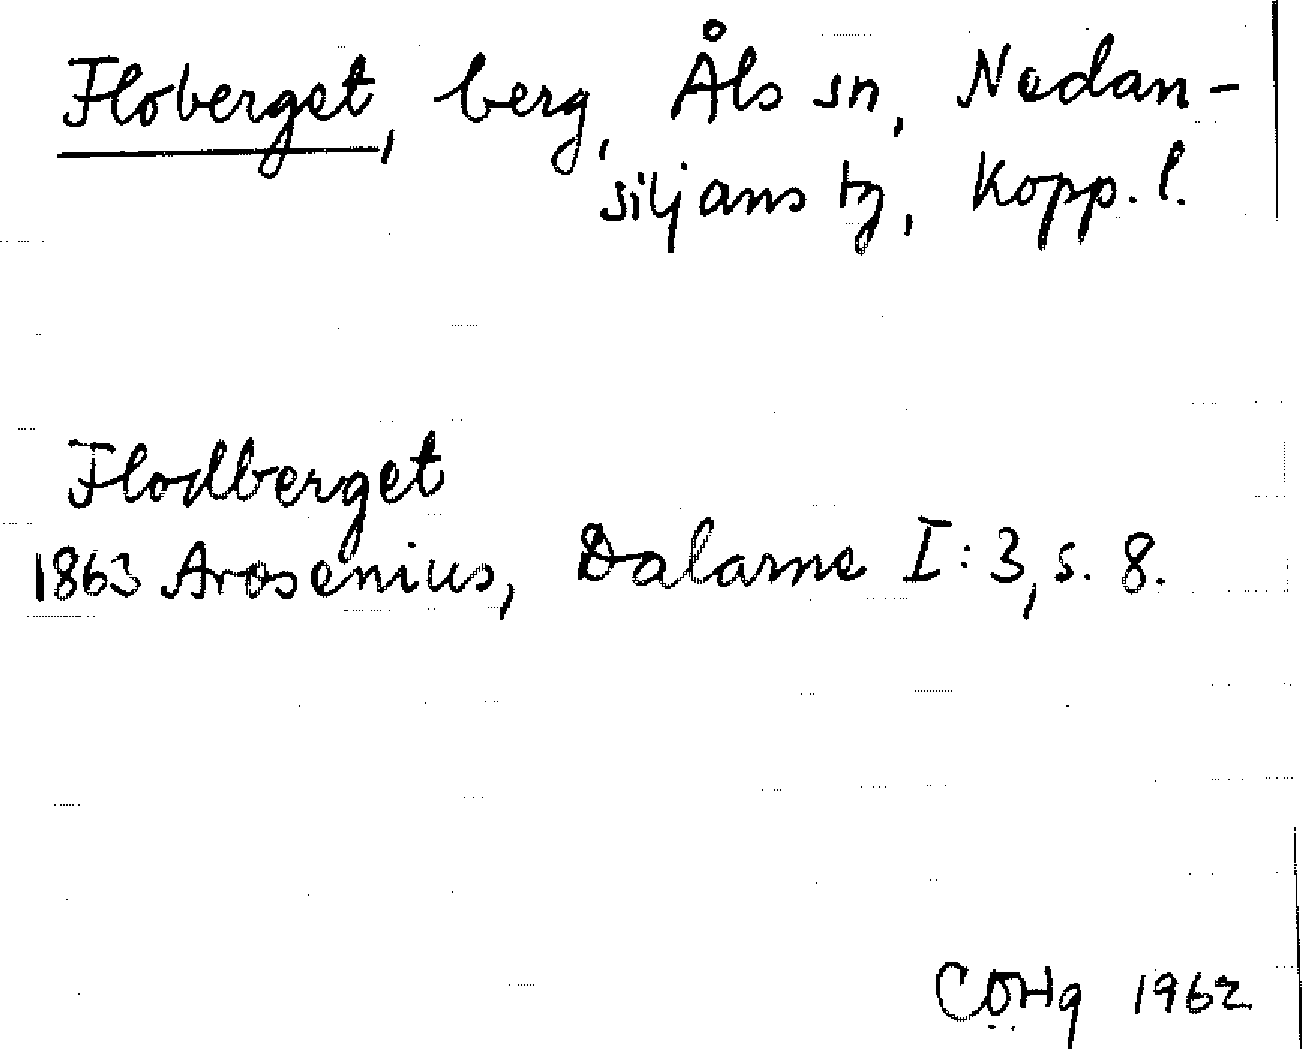 Floberget, berg, Åls sn, Nedan-
siljans tg, Kopp. l.
Flodberget
1863 Arosenius, Dalarne I:3, s. 8.
CÖHg 1962